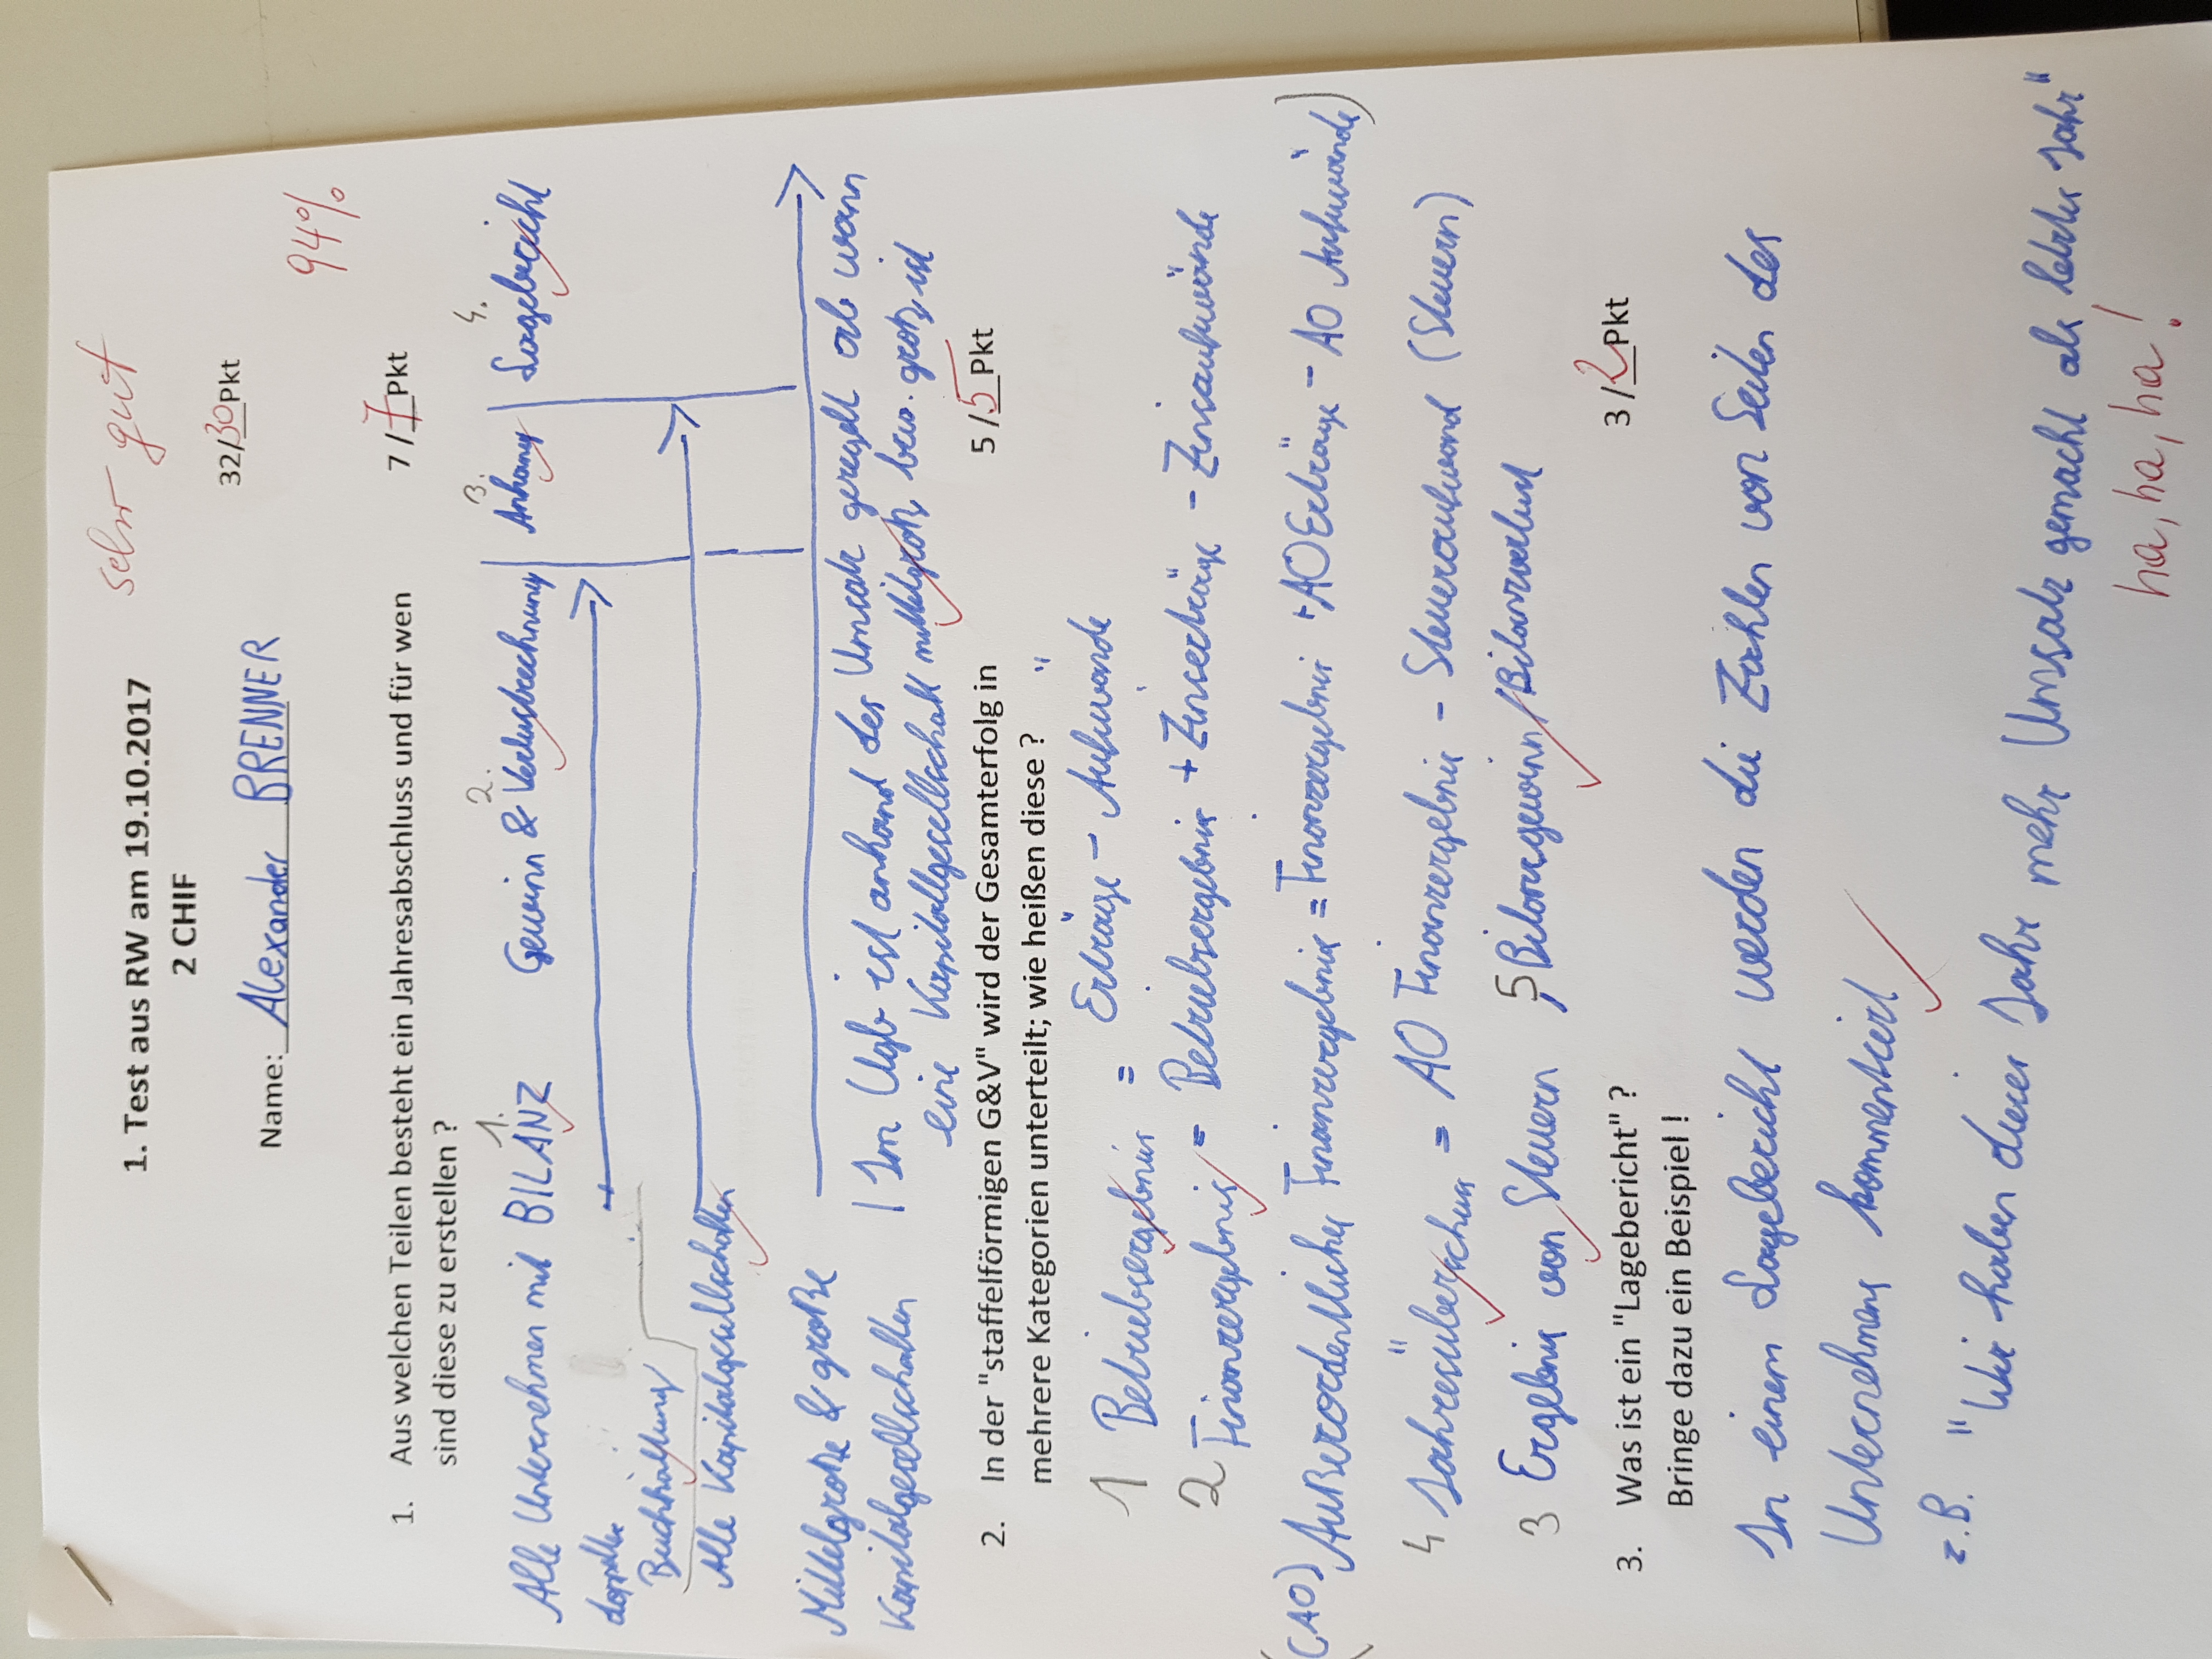 sehr gut
1. Test aus RW am 19.10.2017
2 CHIF
32/30Pkt
Name: Alexander BRENNER
94%
1. Aus welchen Teilen besteht ein Jahresabschluss und für wen 7 /7Pkt
sind diese zu erstellen ?
1. 2. 3. 4.
Alle Unternehmen mit BILANZ Gewinn & Verlustrechnung Anhang Lagebericht
doppelter
Buchhaltung
Alle Kapitalgesellschaften
Mittelgroße & große
Kapitalgesellschaften
Im Ugb ist anhand des Umsatz geregelt ab wann
eine Kapitallgesellschaft mittelgroß bzw. groß ist
2. In der "staffelförmigen G&V" wird der Gesamterfolg in 5 /5Pkt
mehrere Kategorien unterteilt; wie heißen diese ?
1 Betriebsergebnis = Erträge - Aufwände
2 Finanzergebnis = Betriebsergebnis + Zinserträge - Zinsaufwände
(AO) Außerordentliches Finanzergebnis = Finanzergebnis + AO Erträge - AO Aufwände)
4 Jahresüberschuss = AO Finanzergebnis - Steueraufwand (Steuern)
3 Ergebnis von Steuern , 5 Bilanzgewinn/Bilanzverlust
3. Was ist ein "Lagebericht" ? 3 /2Pkt
Bringe dazu ein Beispiel !
In einem Lagebericht werden die Zahlen von Seiten des
Unternehmens kommentiert
z.B. "Wir haben dieses Jahr mehr Umsatz gemacht als letztes Jahr"
ha, ha, ha!